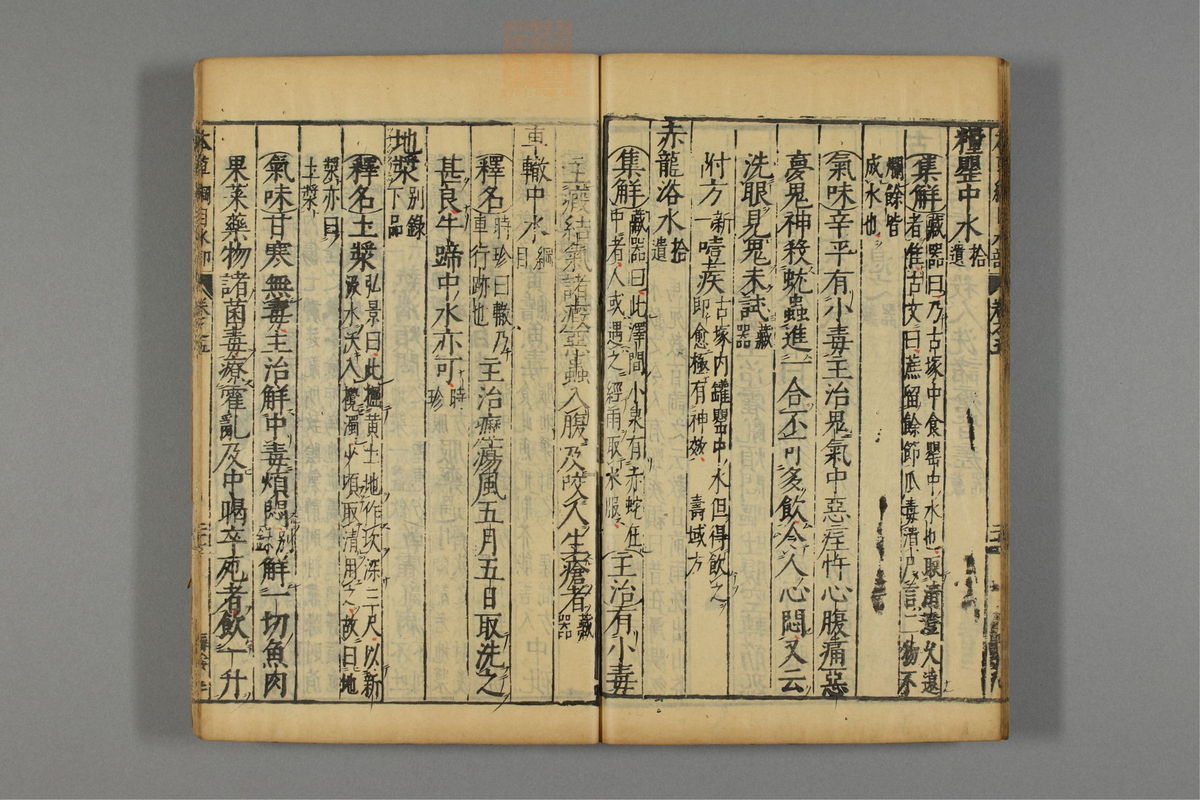 糧罌中水拾遺
集解藏器曰乃古塚中食罌中水也取清澄久遠者佳古文曰蔗留餘節瓜毒漬尸言二物不
爛餘皆成水也
氣味辛平有小毒主治鬼氣中惡疰忤心腹痛惡
夢鬼神殺蚘蟲進一合不可多飲令人心悶又云
洗眼見鬼未試藏器
附方新一噎疾古塚內罐罌中水但得飲之即愈極有神效 壽域方
赤龍浴水拾遺
集解藏器曰此澤間小泉有赤蛇在中者人或遇之經雨取水服主治有小毒
主瘕結氣諸瘕惡蟲入腹及咬人生瘡者藏器
車轍中水綱目
釋名時珍曰轍乃車行跡也主治癧瘍風五月五日取洗之
甚良牛蹄中水亦可時珍
地漿別錄下品
釋名土漿弘景曰此掘黃土地作坎深三尺以新汲水沃入攪濁少頃取清用之故曰地
漿亦曰土漿
氣味甘寒無毒主治解中毒煩悶別錄解一切魚肉
果菜藥物諸菌毒療霍亂及中暍卒死者飲一升